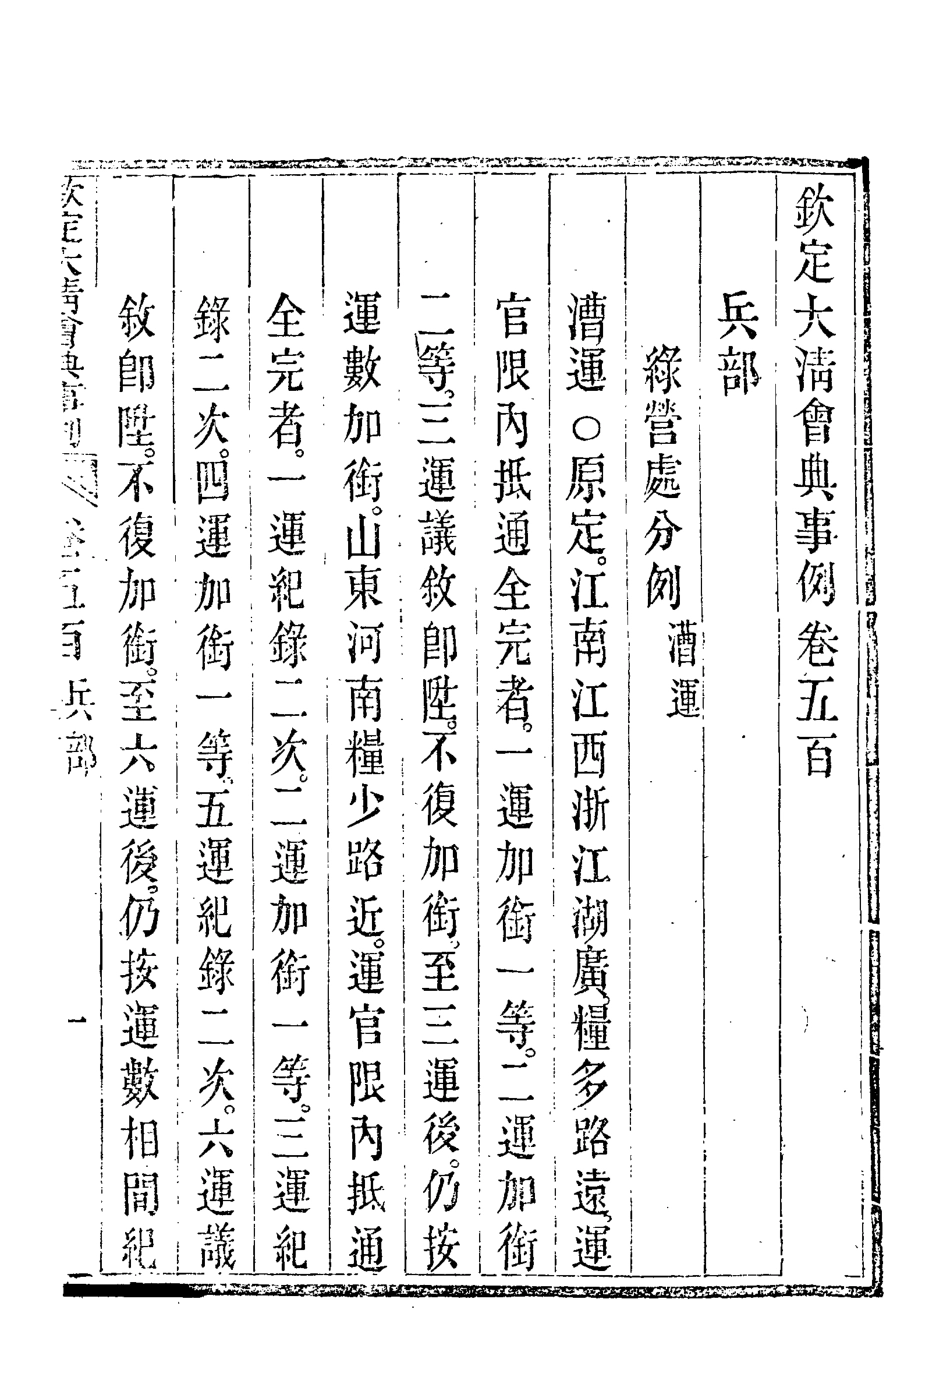 欽定大清會典事例卷五百
兵部
綠營處分例 漕運
漕運○原定。江南江西浙江湖廣。糧多路遠。運
官限內抵通全完者。一運加銜一等。二運加銜
二等。三運議敘卽陞。不復加銜。至三運後。仍按
運數加銜。山東河南糧少路近。運官限內抵通
全完者。一運紀錄二次。二運加銜一等。三運紀
錄二次。四運加銜一等。五運紀錄二次。六運議
敘卽陞。不復加銜。至六運後。仍按運數相間紀
欽定大清會典事例 卷五百 兵部 一